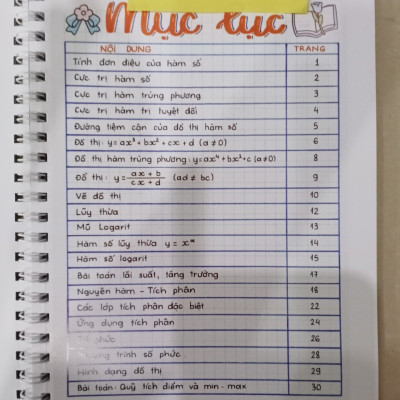 Mục lục
NỘI DUNG TRANG
Tính đơn điệu của hàm số 1
Cực trị hàm số 2
Cực trị hàm trùng phương 3
Cực trị hàm trị tuyệt đối 4
Đường tiệm cận của đồ thị hàm số 5
Đồ thị: y=ax³+bx²+cx+d (a≠0) 6
Đồ thị hàm trùng phương: y=ax⁴+bx²+c (a≠0) 8
Đồ thị: y=ax+b/cx+d (ad≠bc) 9
Vẽ đồ thị 10
Lũy thừa 12
Mũ Logarit 13
Hàm số lũy thừa y=xⁿ 14
Hàm số logarit 15
Bài toán lãi suất, tăng trưởng 17
Nguyên hàm - Tích phân 18
Các lớp tích phân đặc biệt 22
Ứng dụng tích phân 24
phức 26
trình số phức 28
Hình dạng đồ thị 29
Bài toán: Quỹ tích điểm và min-max 30